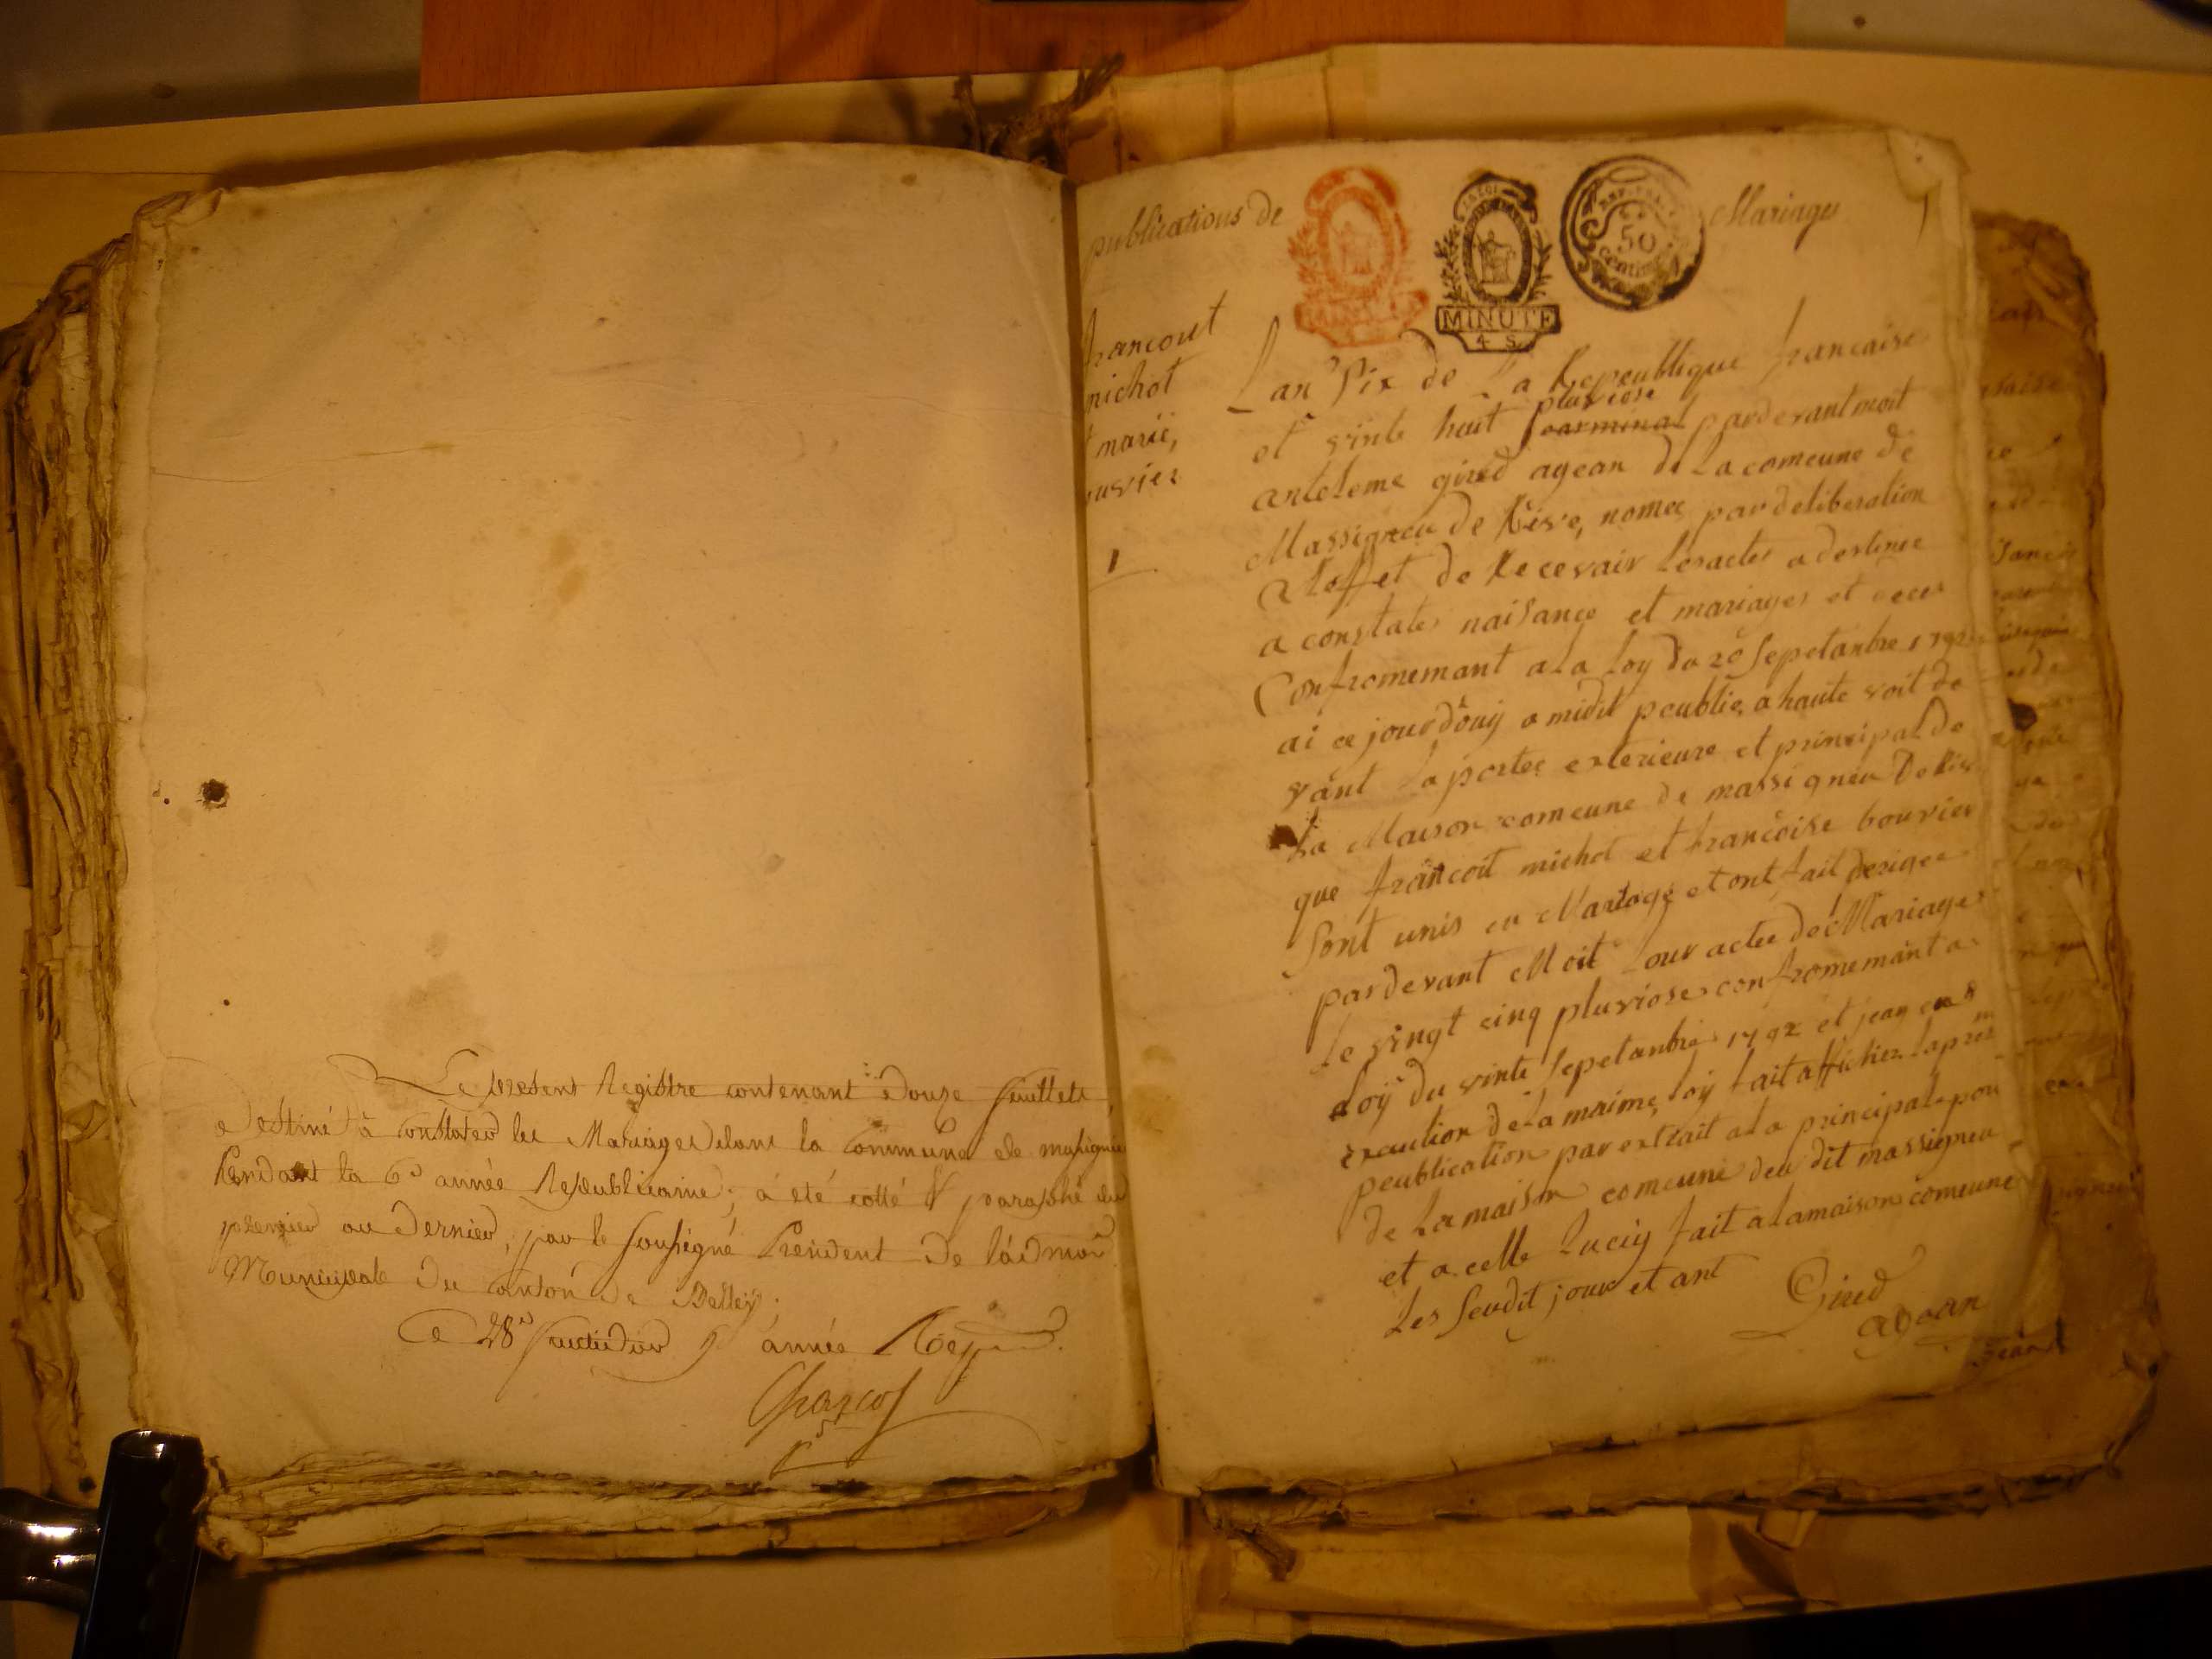 Le present Registre contenant douze feuillets
destiné à constater les Mariages dans la commune de massigneu
Pendant la 6e année Republicaine, a eté cotté & paraphé du
premier au dernier, par le soussigné President de l'admon
Municipale du canton de Belley.
Ce 28e fructidor 5 année Rep
publications de Mariages
MINUTE
4 S
50
centimes
francoit
michot
et marie,
bouvier
1
Lan Six de La Republique francaise
pluviose
et vinte huit parderant moit
anteleme gired agean de La comeune de
Massigneu de Rive, nomee par deliberation
a Leffet de Recevair les actes a destinee
a constater naisance et mariages et deces
Confromemant a La Loy du 20 Sepetanbre 1792
ai ce jourdouy a midit peublie, a haute voit de
vant La portee exterieure et principal de
La Maison comeune de massigneu De Rive
que francoit michot et francoise bouvier
Sont unis en Mariage et ont fait deriger
parderant Moit Leur actee de Mariage
le vingt cinq pluviose confromemant a
Loy du vinte Sepetanbre 1792 et jean en
execution de La maime Loy fait afficher La pres
peublication par extrait a La principale por
de La maison comeune deu dit massigneu
et a celle Lucuy fait a La maison comeune
Les Seudit jour et ant
Gired
agean